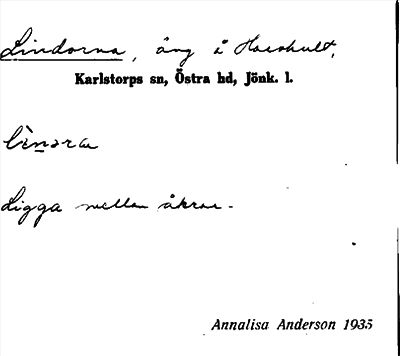 Lindorna, äng i Haeshult,
Karlstorps sn, Östra hd, Jönk. l.
Ligga mellan åkrar.
Annalisa Anderson 1935